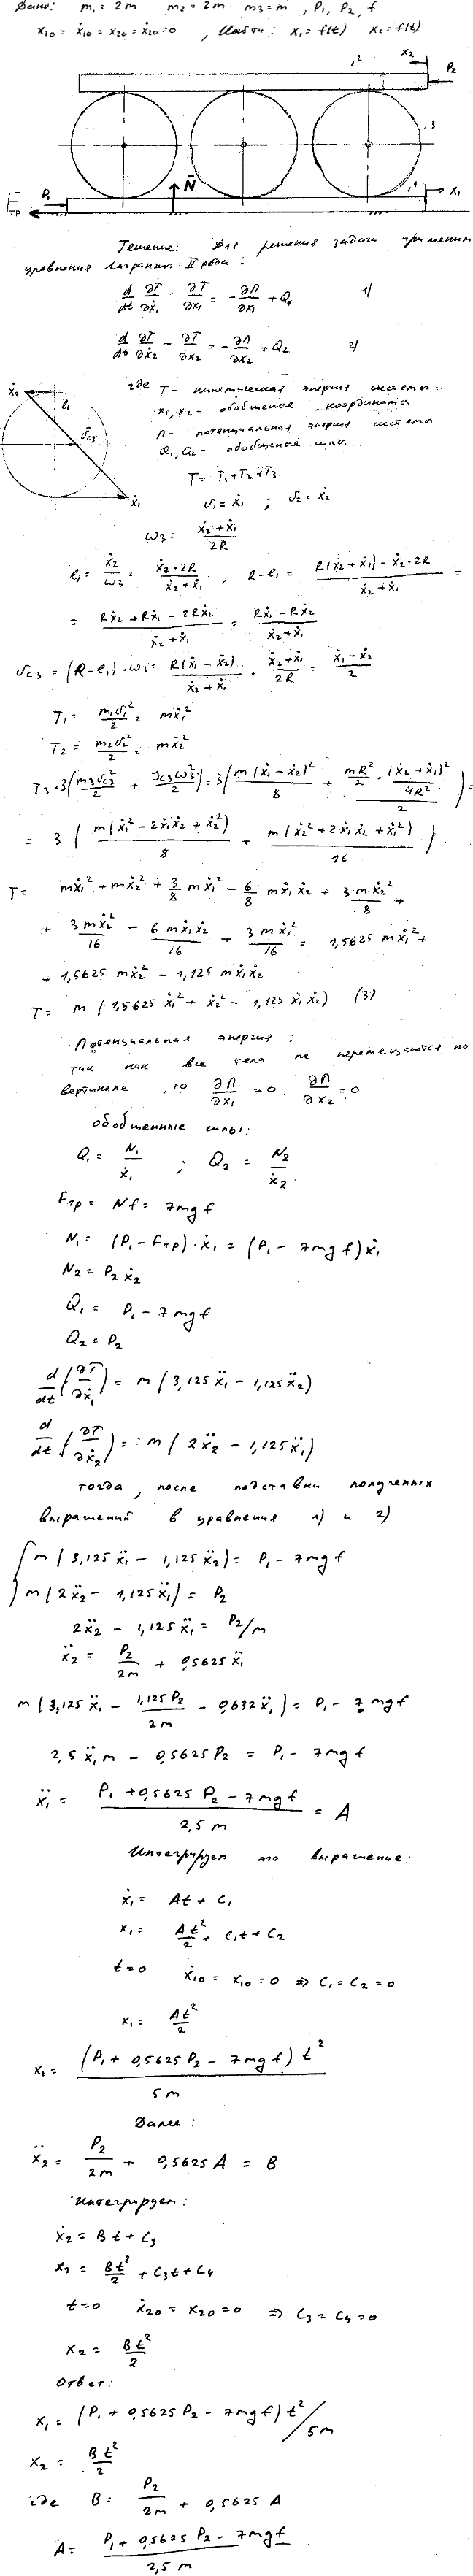 Дано: m₁ = 2m m₂ = 2m m₃ = m , P₁, P₂, f
x₁₀ = ẋ₁₀ = x₂₀ = ẋ₂₀ = 0 , Найти: x₁ = f(t) x₂ = f(t)
x₂
2
P₂
3
N̄
P₁
1
x₁
Fтр
Решение: Для решения задачи применим
уравнения Лагранжа II рода:
d/dt ∂T/∂ẋ₁ - ∂T/∂x₁ = -∂П/∂x₁ + Q₁ 1)
d/dt ∂T/∂ẋ₂ - ∂T/∂x₂ = -∂П/∂x₂ + Q₂ 2)
где T - кинетическая энергия системы
x₁, x₂ - обобщенные координаты
П - потенциальная энергия системы
Q₁, Q₂ - обобщенные силы
ẋ₂
l₁
v̄c₃
ẋ₁
T = T₁ + T₂ + T₃
v₁ = ẋ₁ ; v₂ = ẋ₂
ω₃ = (ẋ₂ + ẋ₁)/2R
l₁ = ẋ₂/ω₃ = ẋ₂·2R/(ẋ₂ + ẋ₁) ; R - l₁ = (R(ẋ₂ + ẋ₁) - ẋ₂·2R)/(ẋ₂ + ẋ₁) =
= (Rẋ₂ + Rẋ₁ - 2Rẋ₂)/(ẋ₂ + ẋ₁) = (Rẋ₁ - Rẋ₂)/(ẋ₂ + ẋ₁)
vc₃ = (R - l₁)·ω₃ = R(ẋ₁ - ẋ₂)/(ẋ₂ + ẋ₁) · (ẋ₂ + ẋ₁)/2R = (ẋ₁ - ẋ₂)/2
T₁ = m₁v₁²/2 = mẋ₁²
T₂ = m₂v₂²/2 = mẋ₂²
T₃ = 3(m₃vc₃²/2 + Jc₃ω₃²/2) = 3(m(ẋ₁ - ẋ₂)²/8 + mR²/2 · (ẋ₂ + ẋ₁)²/4R² /2) =
= 3 (m(ẋ₁² - 2ẋ₁ẋ₂ + ẋ₂²)/8 + m(ẋ₂² + 2ẋ₁ẋ₂ + ẋ₁²)/16)
T = mẋ₁² + mẋ₂² + 3/8 mẋ₁² - 6/8 mẋ₁ẋ₂ + 3mẋ₂²/8 +
+ 3mẋ₂²/16 - 6mẋ₁ẋ₂/16 + 3mẋ₁²/16 = 1,5625 mẋ₁² +
+ 1,5625 mẋ₂² - 1,125 mẋ₁ẋ₂
T = m (1,5625 ẋ₁² + ẋ₂² - 1,125 ẋ₁ẋ₂) (3)
Потенциальная энергия:
так как все тела не перемещаются по
вертикале , то ∂П/∂x₁ = 0 ∂П/∂x₂ = 0
обобщенные силы:
Q₁ = N₁/ẋ₁ ; Q₂ = N₂/ẋ₂
Fтр = Nf = 7mgf
N₁ = (P₁ - Fтр)·ẋ₁ = (P₁ - 7mgf)ẋ₁
N₂ = P₂ẋ₂
Q₁ = P₁ - 7mgf
Q₂ = P₂
d/dt (∂T/∂ẋ₁) = m (3,125ẍ₁ - 1,125ẍ₂)
d/dt (∂T/∂ẋ₂) = m (2ẍ₂ - 1,125ẍ₁)
тогда, после подставки полученных
выражений в уравнения 1) и 2)
m (3,125ẍ₁ - 1,125ẍ₂) = P₁ - 7mgf
m (2ẍ₂ - 1,125ẍ₁) = P₂
2ẍ₂ - 1,125ẍ₁ = P₂/m
ẍ₂ = P₂/2m + 0,5625ẍ₁
m (3,125ẍ₁ - 1,125P₂/2m - 0,632ẍ₁) = P₁ - 7mgf
2,5ẍ₁m - 0,5625P₂ = P₁ - 7mgf
ẍ₁ = (P₁ + 0,5625P₂ - 7mgf)/2,5m = A
Интегрируем это выражение:
ẋ₁ = At + C₁
x₁ = At²/2 + C₁t + C₂
t = 0 ẋ₁₀ = x₁₀ = 0 ⇒ C₁ = C₂ = 0
x₁ = At²/2
x₁ = (P₁ + 0,5625P₂ - 7mgf)t²/5m
Далее:
ẍ₂ = P₂/2m + 0,5625A = B
Интегрируем:
ẋ₂ = Bt + C₃
x₂ = Bt²/2 + C₃t + C₄
t = 0 ẋ₂₀ = x₂₀ = 0 ⇒ C₃ = C₄ = 0
x₂ = Bt²/2
Ответ:
x₁ = (P₁ + 0,5625P₂ - 7mgf)t²/5m
x₂ = Bt²/2
где B = P₂/2m + 0,5625 A
A = (P₁ + 0,5625P₂ - 7mgf)/2,5m